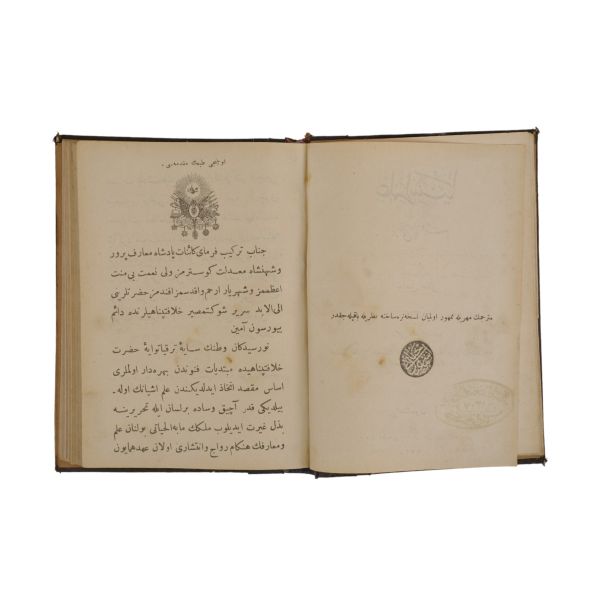 اوچنجی طبعك مقدمه‌سی.
جناب تركیب فرمای كائنات پادشاه معارف پرور
وشهنشاه معدلت كوستر مز ولی نعمت بی منت
اعظممز وشهریار ارحم واقدسمز افندمز حضرتلری
الی الابد سریر شوكتمصیر خلافتپناهیلرنده دائم
بیورسون آمین
نورسیدكان وطنك سایهٔ ترقیاتوایهٔ حضرت
خلافتپناهیده مبتدیات فنوندن بهره‌دار اولملری
اساس مقصد اتخاذ ایدلدیكندن علم اشیانك اوله
بیلدیكی قدر آچیق وساده برلسان ایله تحریرینه
بذل غیرت ایدیلوب ملكك مابه الحیاتی بولنان علم
ومعارفك هنكام رواج وانتشاری اولان عهدهمایون
مترجمك مهریله ممهور اولمیان نسخه‌لره ساخته نظریله باقیله‌جقدر